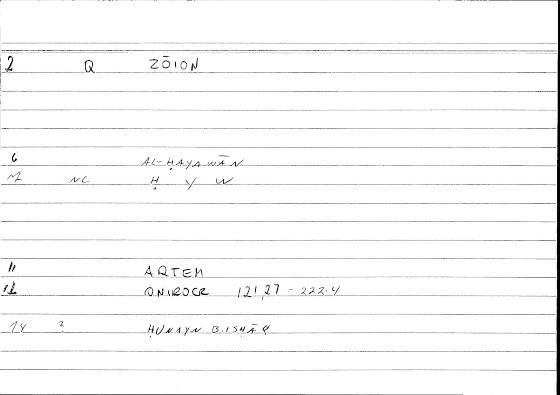 2 Q ZŌION
6 AL-ḤAYAWĀN
7 NC Ḥ Y W
11 ARTEM
12 ONIROCR 121,27 - 222.4
14 2 ḤUNAYN B. ISḤĀQ